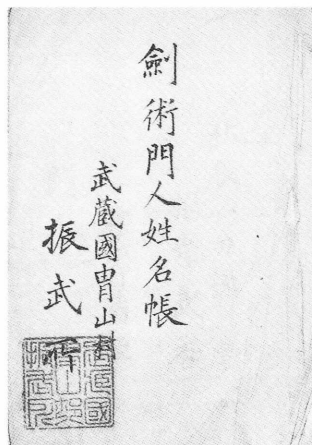 劍術門人姓名帳
武蔵國冑山村
振武所